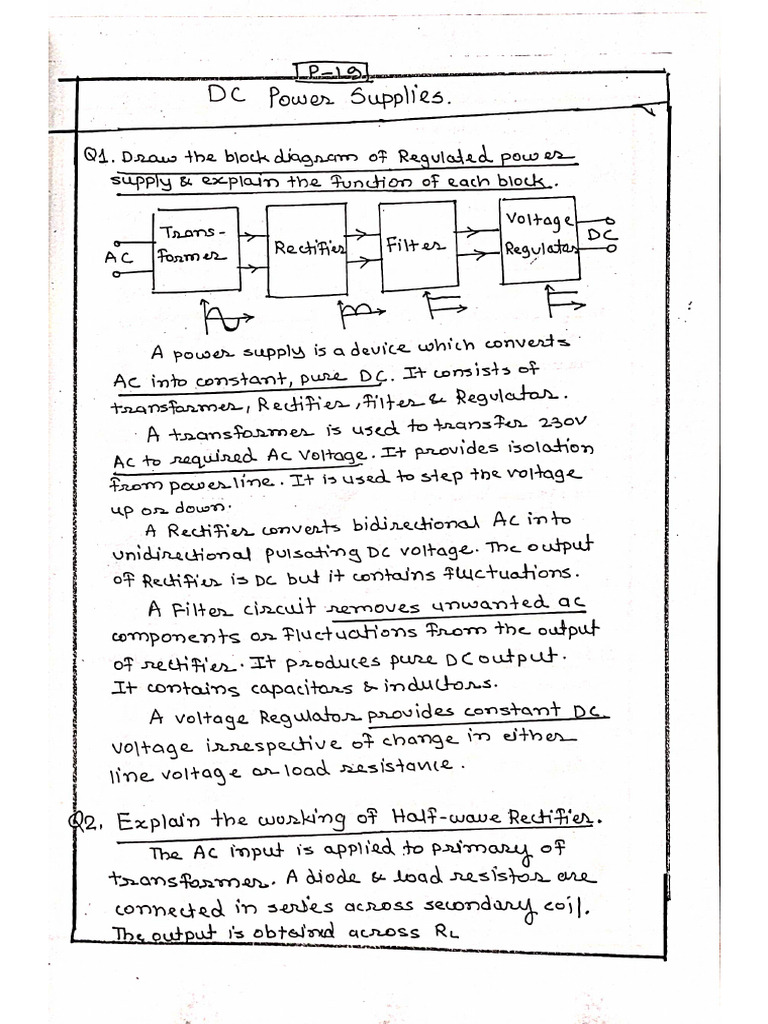 P-19
DC Power Supplies.
Q1. Draw the block diagram of Regulated power
supply & explain the function of each block.
AC
Trans-
former
Rectifier
Filter
Voltage
Regulator
DC
A power supply is a device which converts
AC into constant, pure DC. It consists of
transformer, Rectifier, filter & Regulator.
A transformer is used to transfer 230V
AC to required AC voltage. It provides isolation
from powerline. It is used to step the voltage
up or down.
A Rectifier converts bidirectional AC into
unidirectional pulsating DC voltage. The output
of Rectifier is DC but it contains fluctuations.
A Filter circuit removes unwanted ac
components or fluctuations from the output
of rectifier. It produces pure DC output.
It contains capacitors & inductors.
A voltage Regulator provides constant DC
voltage irrespective of change in either
line voltage or load resistance.
Q2. Explain the working of Half-wave Rectifier.
The AC input is applied to primary of
transformer. A diode & load resistor are
connected in series across secondary coil.
The output is obtained across RL